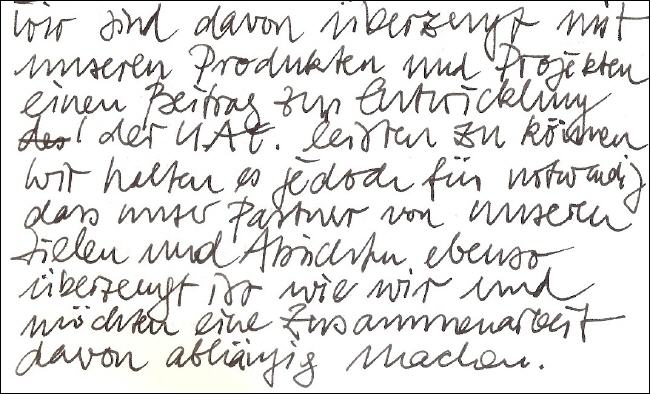 Wir sind davon überzeugt mit
unseren Produkten und Projekten
einen Beitrag zur Entwicklung
der UAE. leisten zu können
Wir halten es jedoch für notwendig
dass unser Partner von unseren
Zielen und Absichten ebenso
überzeugt ist wie wir und
möchten eine Zusammenarbeit
davon abhängig machen.